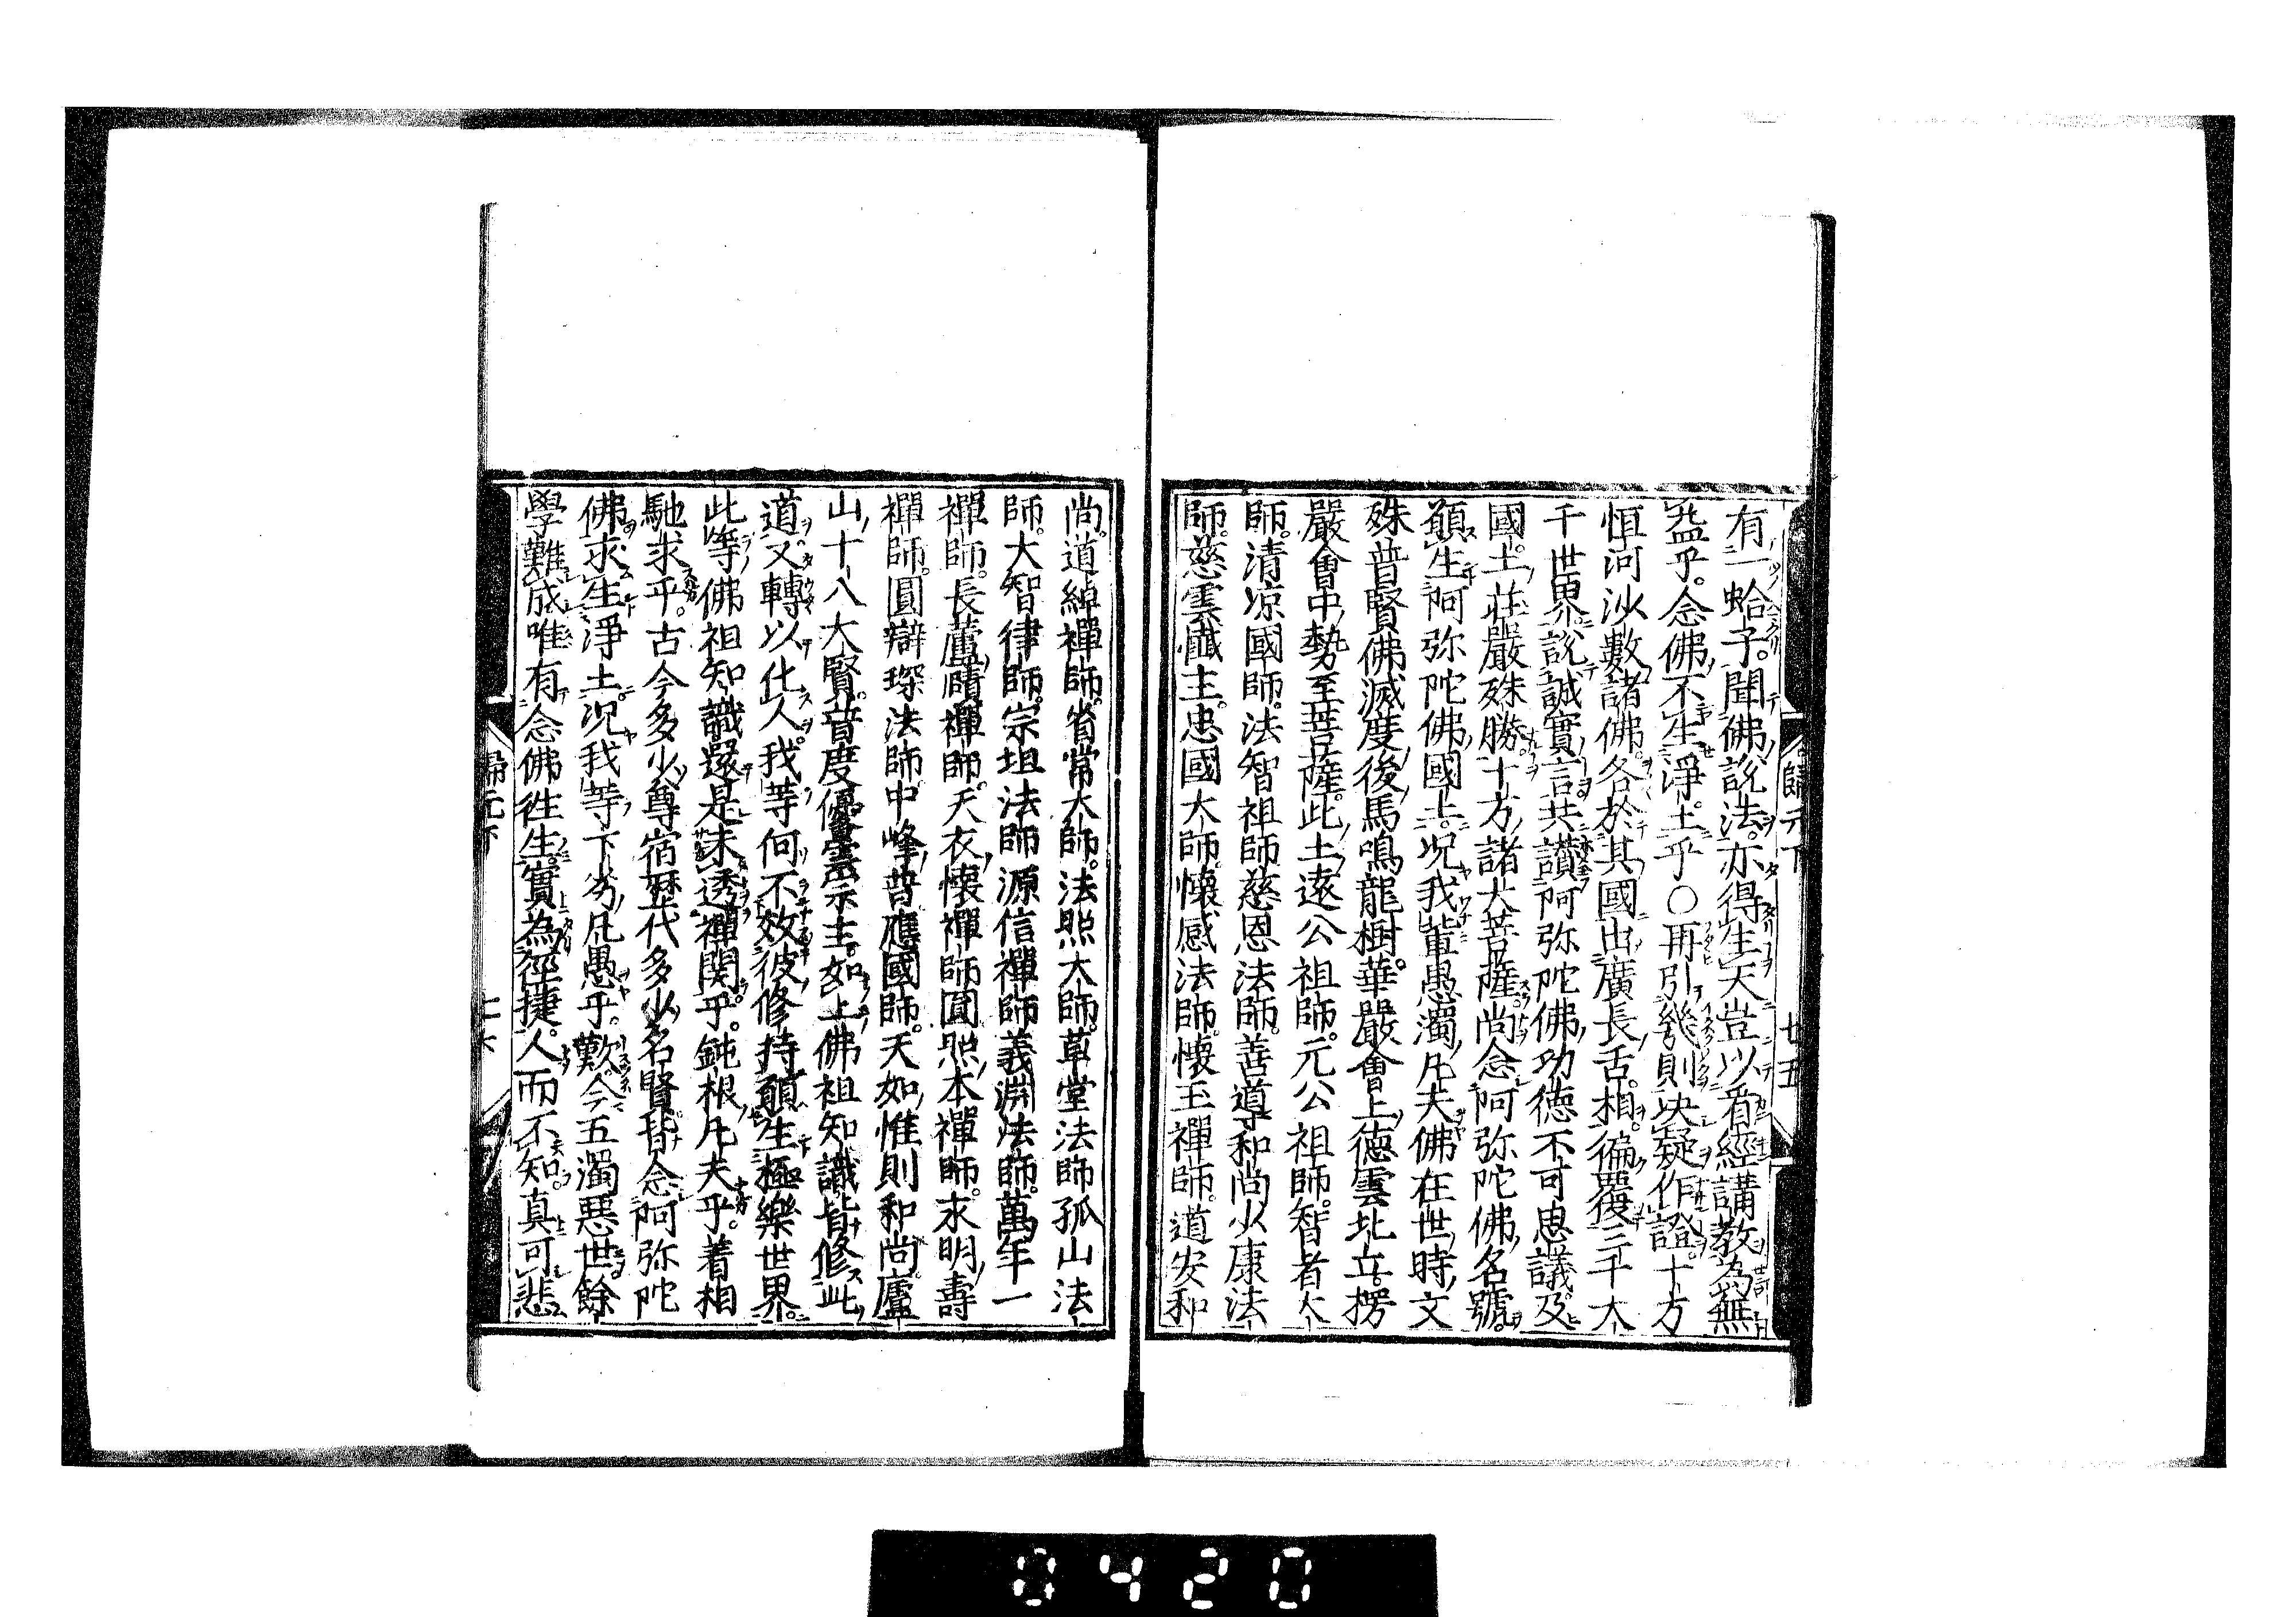 有一蛤子。聞佛說法。亦得生天豈以看經講教為無
益乎。念佛不生淨土乎〇再引幾則決疑作證。十方
恒河沙數諸佛。各於其國出廣長舌相。徧覆三千大
千世界。說誠實言共讚阿弥陀佛功德不可思議。及
國土莊嚴殊勝。十方諸大菩薩尚念阿弥陀佛名號。
願生阿弥陀佛國土。况我輩愚濁凡夫佛在世時文
殊普賢佛滅度後馬鳴龍樹。華嚴會上德雲比丘。楞
嚴會中勢至菩薩。此土遠公祖師。元公祖師。智者大
師。清凉國師。法智祖師慈恩法師。善導和尚少康法
師。慈雲懺主。忠國大師。懷感法師。懷玉禪師。道安和
歸元下
廿五
尚。道綽禪師。省常大師。法照大師。草堂法師孤山法
師。大智律師。宗坦法師源信禪師義淵法師。萬年一
禪師。長蘆賾禪師。天衣懷禪師圓照本禪師。永明壽
禪師。圓辯琛法師。中峰普應國師。天如惟則和尚。廬
山十八大賢。普度優曇宗主。如上佛祖知識皆修此
道。又轉以化人。我等何不效彼修持願生極樂世界。
此等佛祖知識還是未透禪関乎。鈍根凡夫乎。着相
馳求乎。古今多少尊宿歷代多少名賢皆念阿弥陀
佛求生淨土。况我等下劣凡愚乎。歎今五濁惡世。餘
學難成唯有念佛往生。實為徑捷。人而不知。真可悲
歸元下
0420